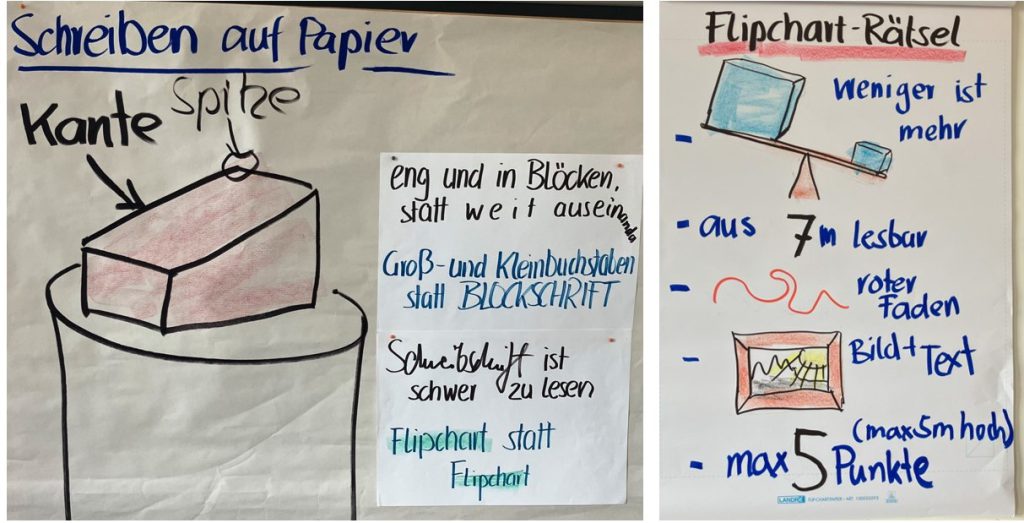 Schreiben auf Papier
Spitze
Kante
eng und in Blöcken,
statt weit auseinander
Groß- und Kleinbuchstaben
statt BLOCKSCHRIFT
Schreibschrift ist
schwer zu lesen
Flipchart statt
Flipchart
Flipchart-Rätsel
- Weniger ist
mehr
- aus 7m lesbar
- roter
Faden
- Bild + Text
(max 5m hoch)
- max 5 Punkte